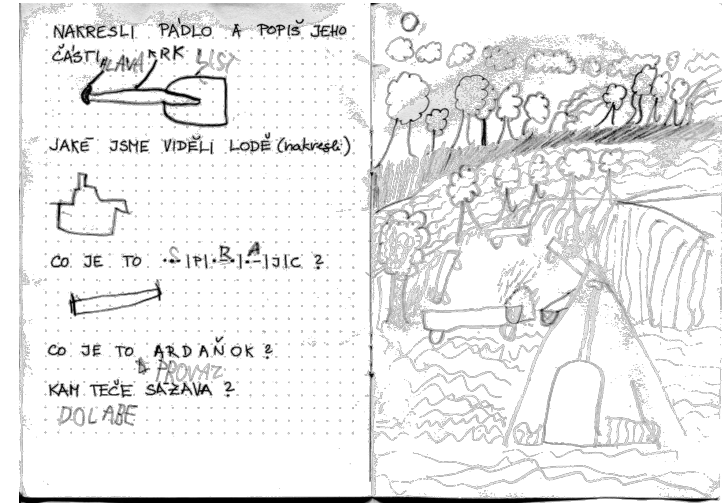 NAKRESLI PÁDLO A POPIŠ JEHO
ČÁSTI HLAVA KRK LIST
JAKÉ JSME VIDĚLI LODĚ (nakresli)
CO JE TO S|P|R|A|J|C ?
CO JE TO ARDAŇOK ?
PROVAZ
KAM TEČE SÁZAVA ?
DO LABE